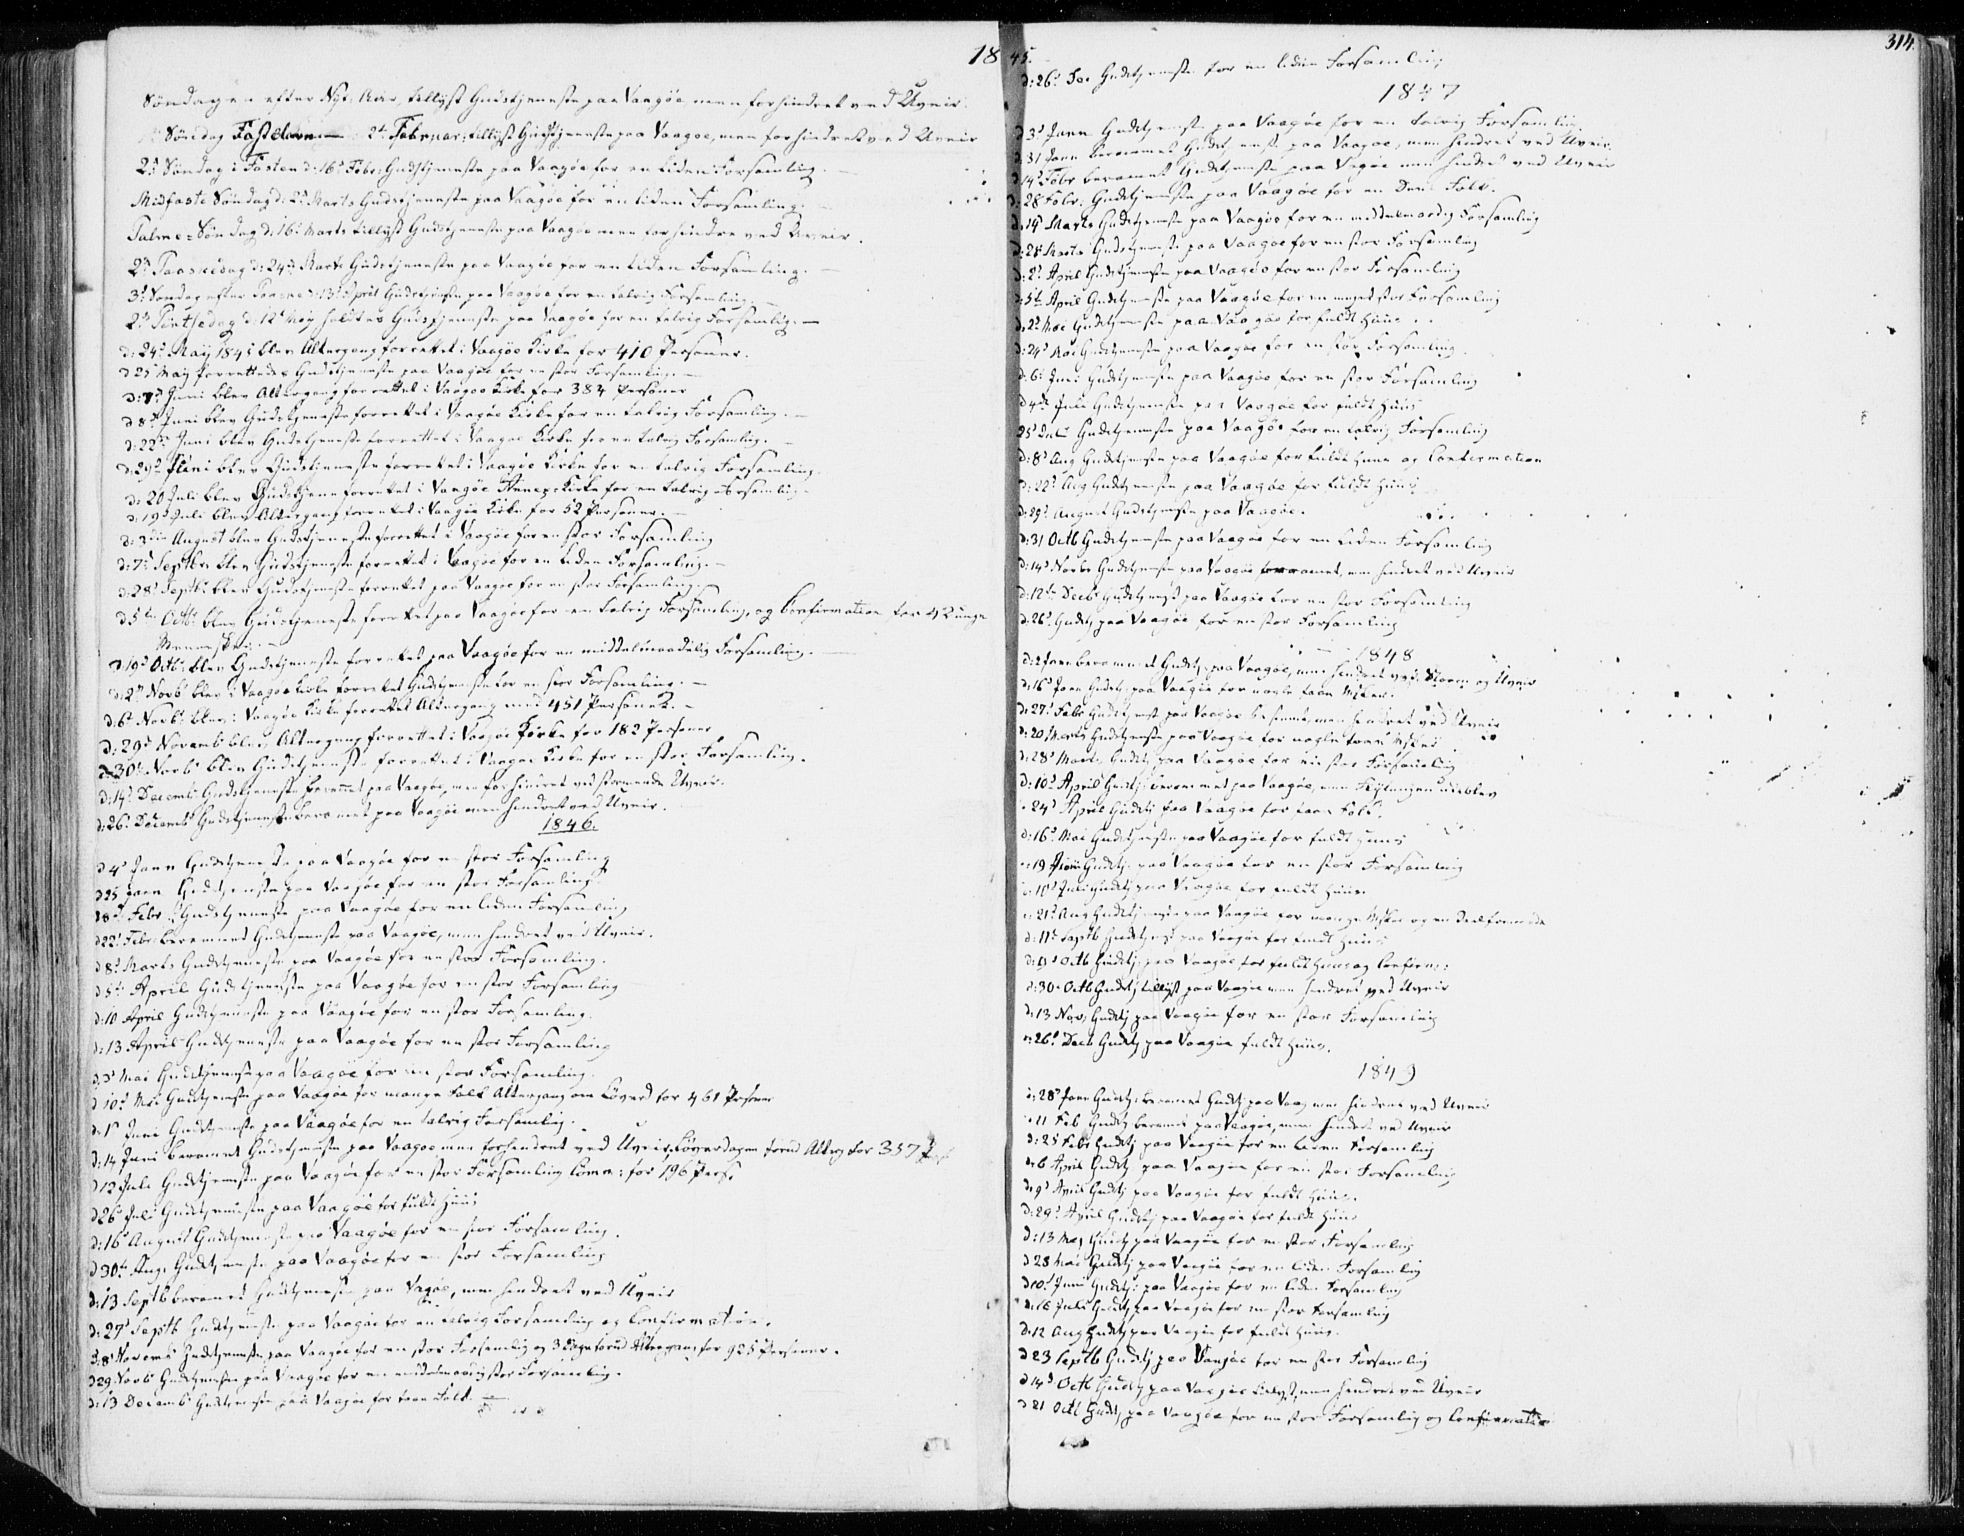 1845.
Søndagen efter Nyt-Aar, tillyst Gudstjeneste paa Vaagøe men forhindret ved Uveir.
Søndag Fastelavn 2d Februar, tillyst Gudstjeneste paa Vaagøe, men forhindret ved Uveir
2d Søndag i Fasten d: 16d Febr: Gudstjeneste paa Vaagøe for en liden Forsamling.
Midfaste Søndag d: 2d Marts Gudstjeneste paa Vaagøe for en liden Forsamling.
Palme-Søndag d: 16d Marts tillyst Gudstjeneste paa Vaagøe men forhindret ved Uveir.
2d Paaskedag d: 24d Marts Gudstjeneste paa Vaagøe for en liden Forsamling.
3d Søndag efter Paaske d: 13d April Gudstjeneste paa Vaagøe for en talrig Forsamling.
2d Pintsedag d: 12d May holdtes Gudstjeneste paa Vaagøe for en talrig Forsamling.
d: 24d May 1845 blev Altergang forrettet i Vaagøe Kirke for 410 Personer.
d 25 May forrettedes Gudstjeneste paa Vaagøe for en stor Forsamling.
d: 7d Juni blev Altergang forrettet i Vaagøe Kirke for 384 Personer
d 8d Juni blev Gudstjeneste forrettet i Vaagøe Kirke for en talrig Forsamling.
d: 22d Juni blev Gudstjeneste forrettet i Vaagøe Kirke for en talrig Forsamling.
d: 29d Juni blev Gudstjeneste forrettet i Vaagøe Kirke for en talrig Forsamling.
d: 20 Juli blev Gudstjene forrettet i Vaagøe Annex-Kirke for en talrig Forsamling.
d: 19d Juli blev Altergang forrettet i Vaagøe Kirke for 52 Personer.
d: 3die August blev Gudstjeneste forrettet i Vaagøe for en stor Forsamling
d: 7d Septbr blev Gudstjeneste forrettet i Vaagøe for en liden Forsamling.
d: 28d Septb: blev Gudstjeneste forrettet paa Vaagøe for en stor Forsamling.
d 5te Octb: blev Gudstjeneste forrettet paa Vaagøe for en talrig Forsamling, og Confirmation for 42 unge
Mennesker.
d: 19d Octb: blev Gudstjeneste forrettet paa Vaagøe for en middelmaadelig Forsamling.
d: 2d Novb: blev i Vaagøe Kirke forrettet Gudstjeneste for en stor Forsamling.
d: 6d Novb: blev i Vaagøe Kirke forrettet Altergang med 451 Personer.
d: 29d Novemb: blev Altergang forrettet i Vaagøe Kirke for 182 Personer
d 30te Novb: blev Gudstjeneste forrettet i Vaagøe Kirke for en stor Forsamling.
d: 14d Decemb: Gudstjeneste berammet paa Vaagøe, men forhindret ved stormende Uveir.
d: 26d Decemb: Gudstjeneste berammet paa Vaagøe men hindret ved Uveir.
1846.
d 4d Janr Gudstjeneste paa Vaagøe for en stor Forsamling
d 25 Janr Gudstjeneste paa Vaagøe for en stor Forsamling
d 8d Febr: Gudstjeneste paa Vaagøe for en liden Forsamling
d 22d Febr: berammet Gudstjeneste paa Vaagøe, men hindret ved Uveir.
d 8d Marts Gudstjeneste paa Vaagøe for en stor Forsamling.
d 5te April Gudstjeneste paa Vaagøe for en stor Forsamling
d: 10 April Gudstjeneste paa Vaagøe for en stor Forsamling.
d: 13 April Gudstjeneste paa Vaagøe for en stor Forsamling
d 3d Mai Gudstjeneste paa Vaagøe for en stor Forsamling.
d 10d Mai Gudstjeneste paa Vaagøe for mange Folk Altergang om Løverd for 461 Personer
d: 1d Juni Gudstjeneste paa Vaagøe for en talrig Forsamling.
d: 14 Juni berammet Gudstjeneste paa Vaagøe men forhindret ved Uveir, Løverdagen forud Alterg for 357 P
d 12 Juli Gudstjeneste paa Vaagøe for en stor Forsamling Comm: for 196 Pers.
d 26d Juli Gudstjeneste paa Vaagøe for fuldt Huus
d: 16d August Gudstjeneste paa Vaagøe for en stor Forsamling.
d 30te Aug: Gudstjeneste paa Vaagøe for en stor Forsamling
d: 13 Septb berammet Gudstjeneste paa Vagøe, men hindret ved Uveir
d: 27d Septb Gudstjeneste paa Vaagøe for en talrig Forsamling og Confirmation.
d: 8d Novemb Gudstjeneste paa Vaagøe for en stor Forsamling og 3 Dage forud Altergang for 925 Personer.
d 29 Novb: Gudstjeneste paa Vaagøe for en middelmaadig stor Forsamling.
d: 13 Decemb: Gudstjeneste paa Vaagøe for faae Folk
314.
d: 26d Gudstjeneste for en liden Forsamling
1847
d 3d Janr Gudstjeneste paa Vaagøe for en talrig Forsamling
d: 31 Janr berammet Gudstjeneste paa Vaagøe, men hindret ved Uveir.
d 14d Febr berammet Gudstjeneste paa Vagøe men hindret ved Uveir
d: 28 Febr. Gudstjeneste paa Vaagøe for en Deel Folk.
d: 14d Marts Gudstjeneste paa Vaagøe for en middelmaadig Forsamling
d: 28 Marts Gudstjeneste paa Vaagøe for en stor Forsamling
d: 2d April Gudstjeneste paa Vaagøe for en stor Forsamling
d: 5te April Gudstjeneste paa Vaagøe for en meget stor Forsamling
d: 2d Mai Gudstjeneste paa Vaagøe for fuldt Huus
d: 24d Mai Gudstjeneste paa Vaagøe for en stor Forsamling.
d: 6d Juni Gudstjeneste paa Vaagøe for en stor Forsamling
d 4de Juli Gudstjeneste paa Vaagøe for fuldt Huus
25d Juli Gudstjeneste paa Vaagøe for en talrig Forsamling
d: 8d Aug Gudstjeneste paa Vaagøe for fuldt Huus og Confirmation
d: 22d Aug Gudstjeneste paa Vaagøe for fuldt Huus
d: 29d August Gudstjeneste paa Vaagøe.
d: 31 Octb Gudstjeneste paa Vaagøe for en liden Forsamling
d: 14d Novbr Gudstjeneste paa Vaagøe berammet, men hindret ved Uveir
d: 12te Decb: Gudstjenest paa Vaagøe for en stor Forsamling
d: 26d Gudstj paa Vaagøe for en stor Forsamling
1848
d: 2 Janr berammet Gudstj: paa Vaagøe, men hindret ved Storm og Uveir
d: 16d Janr Gudstj: paa Vaagøe for nogle faae Msker.
d: 27d Febr Gudstjenest paa Vaagøe bestemt, men hindret ved Uveir
d: 20 Marts Gudstjeneste paa Vaagøe for nogle faae Msker
d: 28d Marts Gudstj paa Vaagøe for en stor Forsamling
d: 10d April Gudstj: berammet paa Vaagøe, men Skydsningen udeblev
24d April Gudstj paa Vaagøe for faae Folk.
d: 16d Mai Gudstjeneste paa Vaagøe for fuldt Huus
19 Juni Gudstj: paa Vaagøe for en stor Forsamling
10d Juli Gudstj paa Vaagøe for fuldt Huus
21d Aug Gudstjeneste paa Vaagøe for mange Msker og en Deel fremmede
d: 11d Septb Gudstjenest paa Vaagøe for fuldt Huus
d: 9d Octb Gudstj: paa Vaagøe for fuldt Huus og Confirm:
d: 30d Octb Gudstj tillyst paa Vaagøe men hindret ved Uveir
d: 13 Nov: Gudstj paa Vaagøe for en stor Forsamling
d: 26d Decb Gudstj paa Vaagøe fuldt Huus.
1849
d: 28d Janr Gudstj: berammet Gudstj paa Vaag men hindret ved Uveir
11 Feb Gudstj berammet paa Vaagøe, men hindret ved Uveir
d: 25 Febr Gudstj paa Vaagøe for en liden Forsamling
d: 6 April Gudstj paa Vaagøe for en stor Forsamling
d: 9d April Gudstj paa Vaagøe for fuldt Huus.
d: 29d April Gudstj paa Vaagøe for fuldt Huus
d: 13 Mai Gudstj paa Vaagøe for en stor Forsamling
d 28 Mai Gudstj paa Vaagøe for en liden Forsamling
d 10d Juni Gudstj: paa Vaagøe for en liden Forsamling
Juli Gudstj paa Vaagøe for en stor Forsamling
d: 12 Aug Gudstj paa Vaagøe for fuldt Huus.
d 23 Septb Gudstj paa Vaagøe for en stor Forsamling
d 14d Octb Gudstj paa Vaagøe tillyst, men hindret ved Uveir
d 21 Octb Gudst, paa Vaagøe for en stor Forsamling og Confirmation